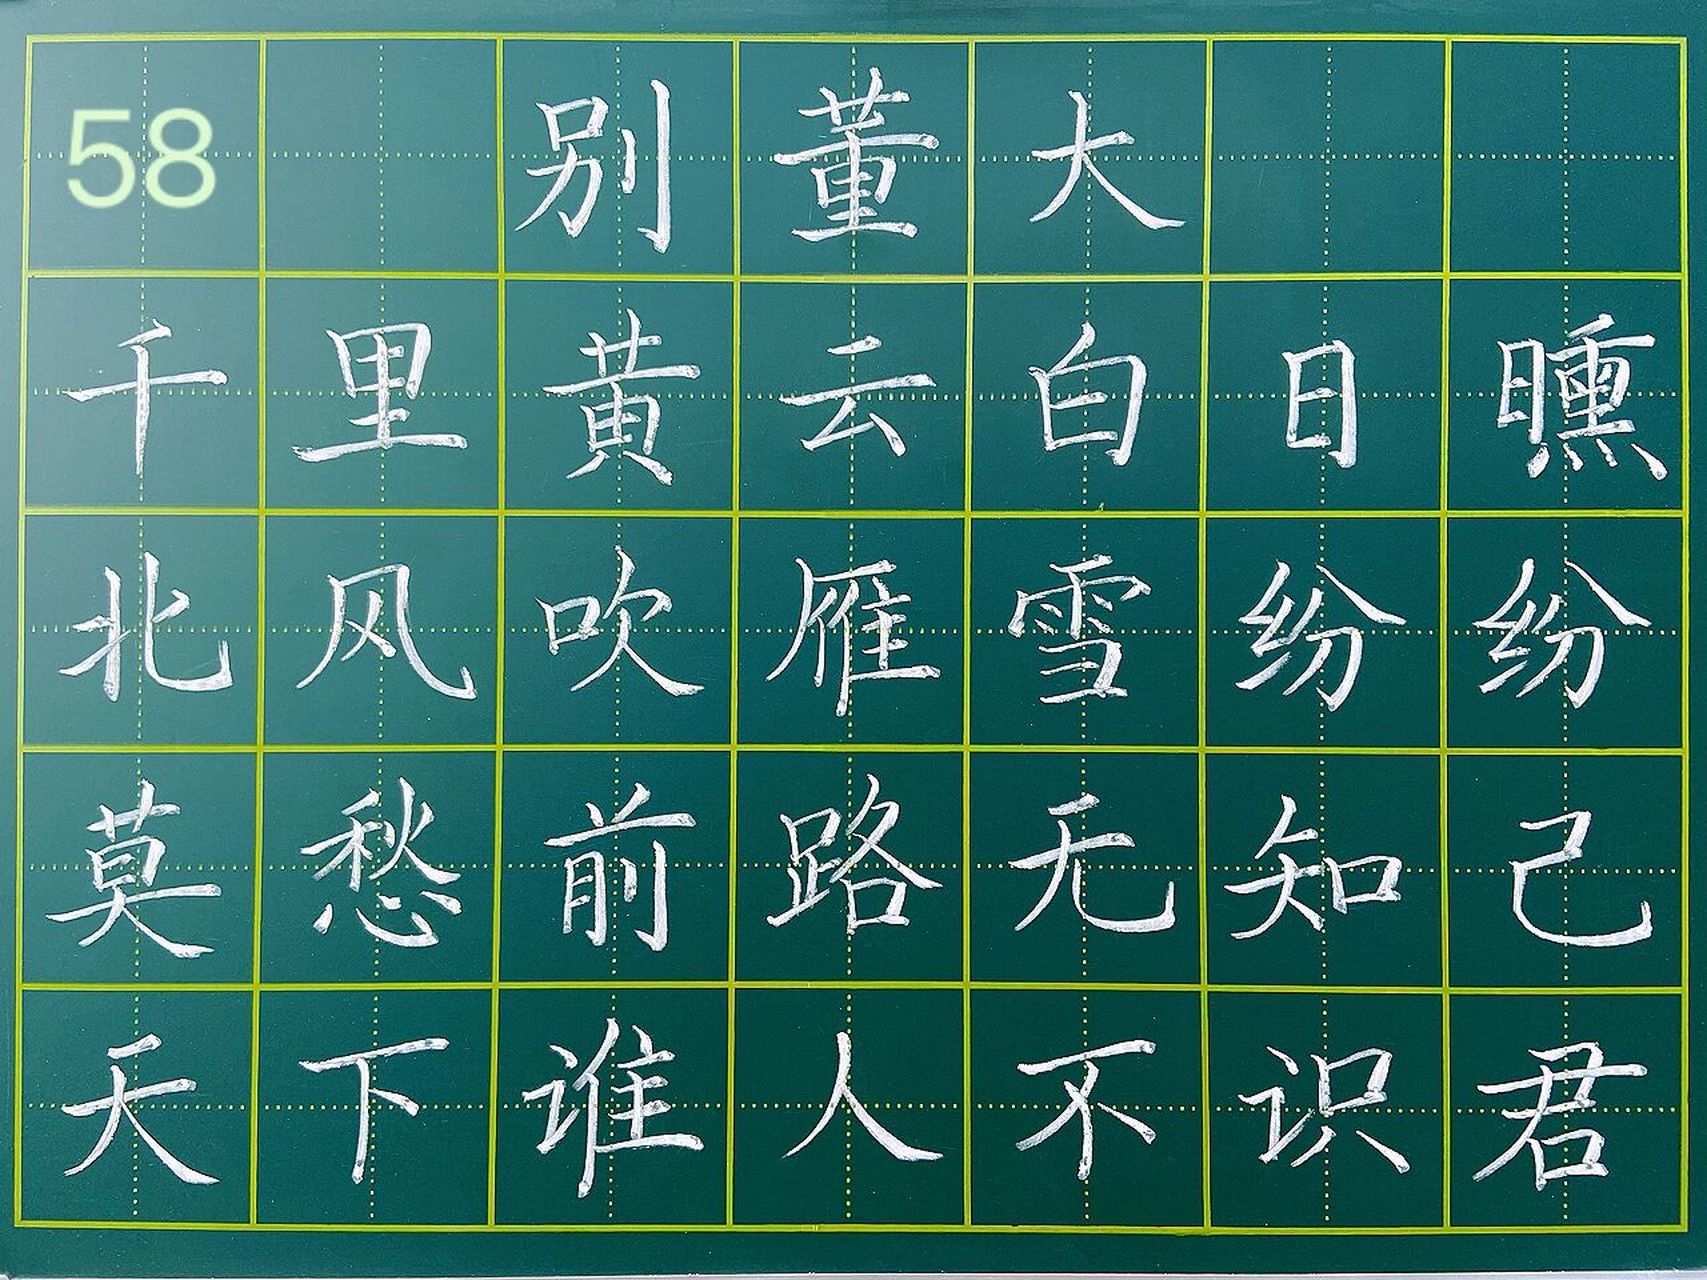 58 别董大
千里黄云白日曛
北风吹雁雪纷纷
莫愁前路无知己
天下谁人不识君